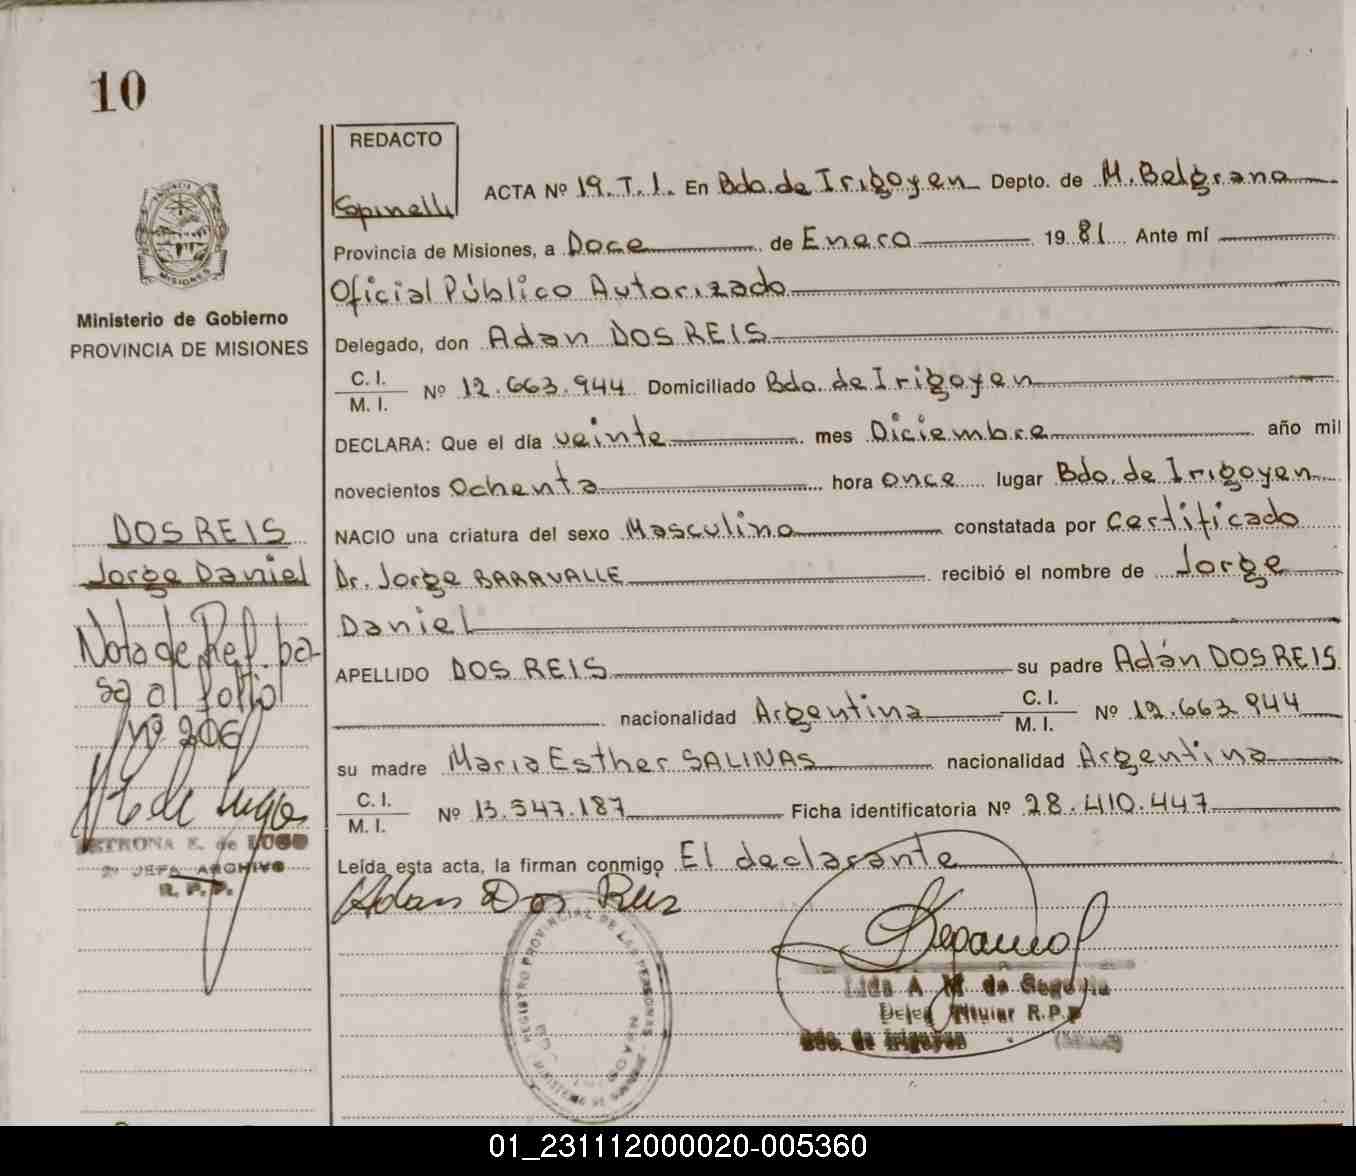 10
REDACTO
Spinelli
ACTA Nº 19. T. 1. En Bdo. de Irigoyen Depto. de M. Belgrano
Provincia de Misiones, a Doce de Enero 1981 Ante mí
Oficial Público Autorizado
Delegado, don Adan DOS REIS
C. I.
M. I.
Nº 12.663.944 Domiciliado Bdo. de Irigoyen
DECLARA: Que el día veinte mes Diciembre año mil
novecientos Ochenta hora once lugar Bdo. de Irigoyen
NACIO una criatura del sexo Masculino constatada por Certificado
Dr. Jorge BARAVALLE recibió el nombre de Jorge
Daniel
APELLIDO DOS REIS su padre Adán DOS REIS
nacionalidad Argentina C. I. M. I. Nº 12.663.944
su madre Maria Esther SALINAS nacionalidad Argentina
C. I.
M. I.
Nº 13.547.187 Ficha identificatoria Nº 28.410.447
Leída esta acta, la firman conmigo El declarante
Adan Dos Reis
REGISTRO PROVINCIAL DE LAS PERSONAS
de
Titular R.P.P
Bdo. de Irigoyen
MISIONES
Ministerio de Gobierno
PROVINCIA DE MISIONES
DOS REIS
Jorge Daniel
Nota de Ref. pa-
sa al folio
nº 206
E. de LUGO
2º JEFA ARCHIVO
R. P. P.
01_231112000020-005360